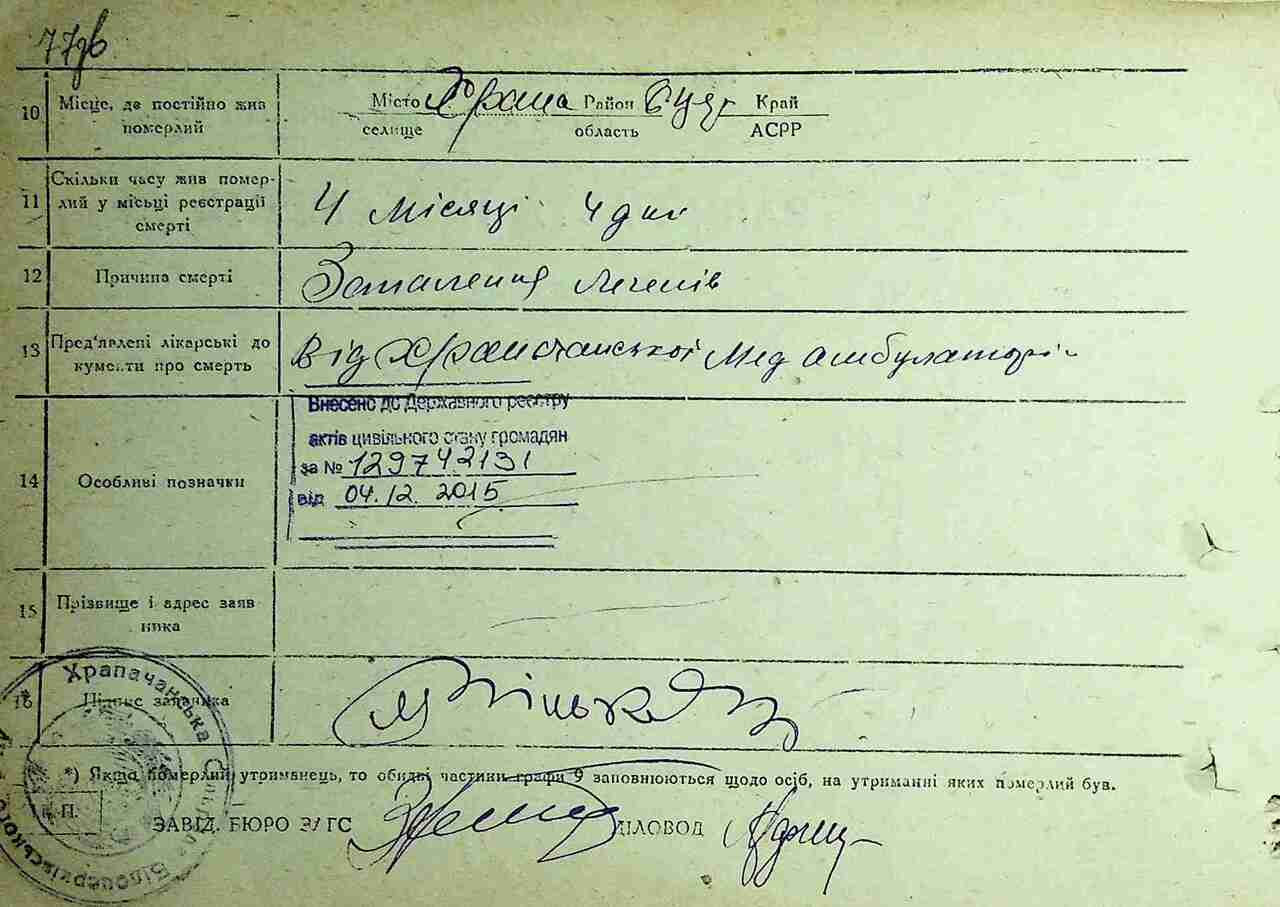 77зв
10 Місце, де постійно жив Місто Храпа Район Край
померлий селище область АСРР
11 Скільки часу жив помер-
лий у місьці реєстрації 4 місяці 4 дні
смерті
12 Причина смерті Запалення легенів
13 Пред'явлені лікарські до Від Храпачанської мед амбулаторі
кументи про смерть
Внесено до Державного реєстру
актів цивільного стану громадян
за № 129742131
14 Особливі позначки
від 04.12. 2015
15 Прізвище і адрес заяв
ника
16 Підпис заявника
Храпачанська Сільрада Білоцерківського
*) Якща померлий утриманець, то обидві частини графи 9 заповнюються щодо осіб, на утриманні яких померлий був.
М. П.
ЗАВІД. БЮРО ЗАГС ДІЛОВОД